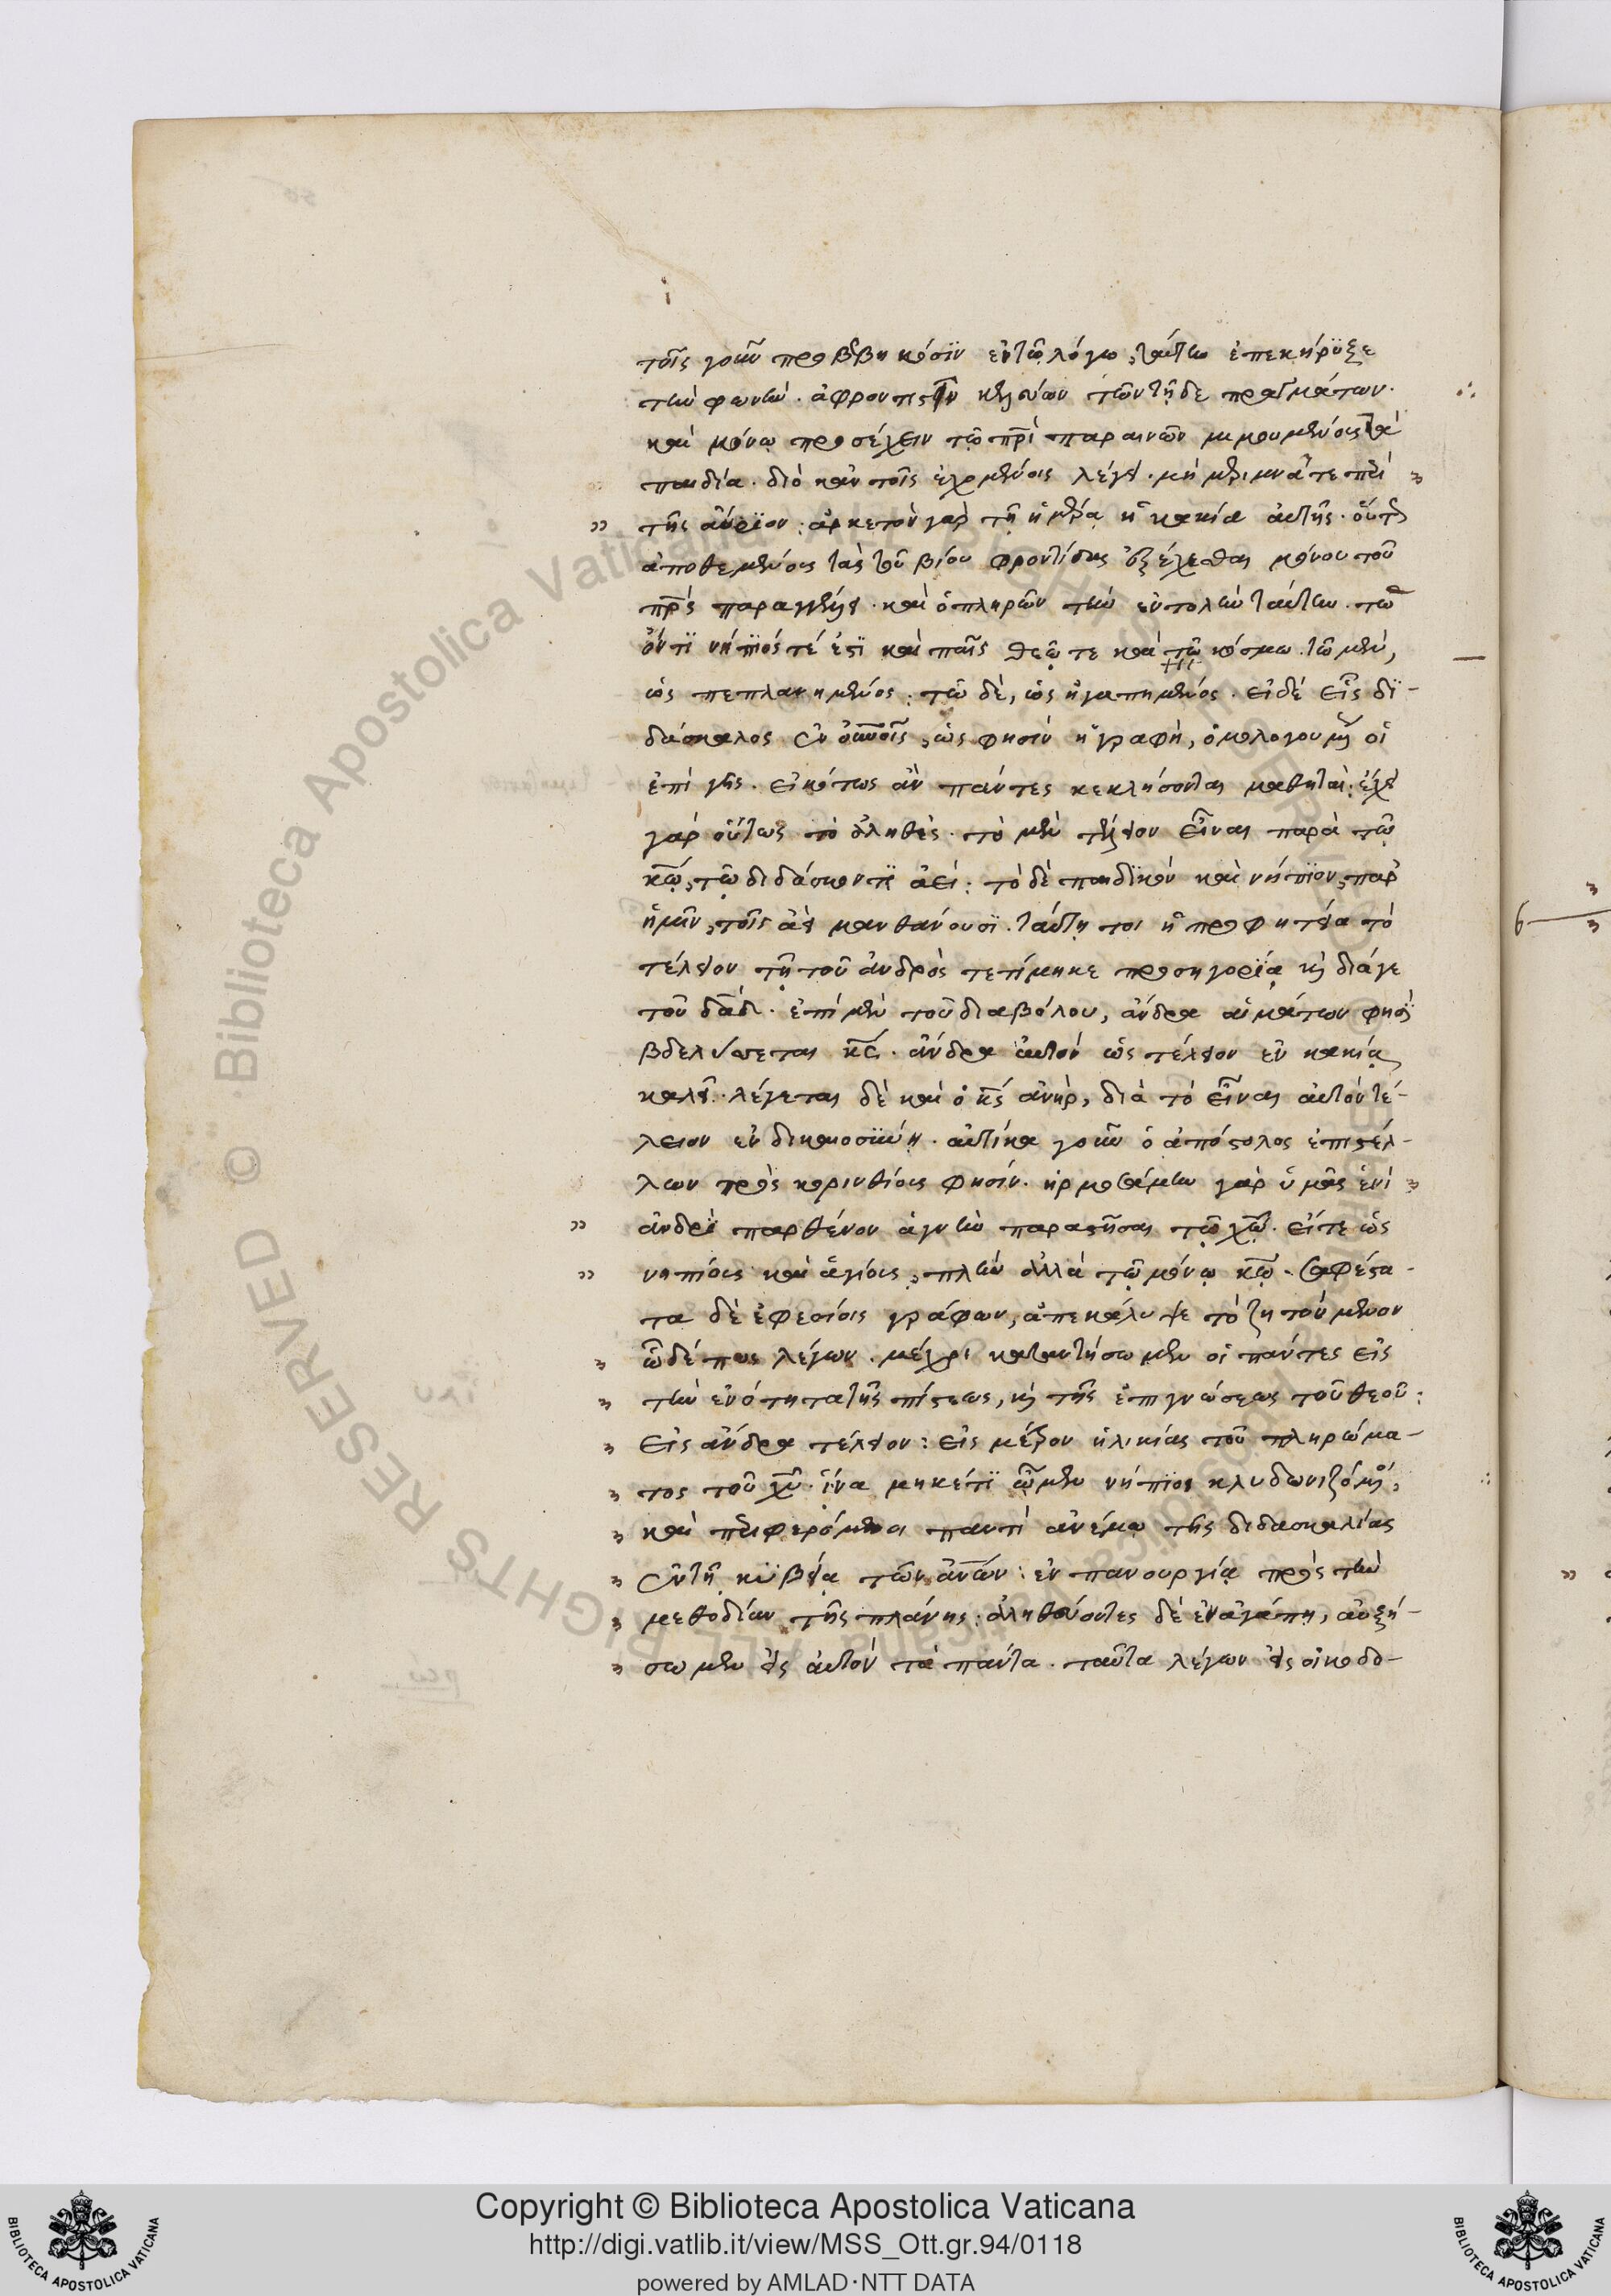 τοῖς γοῦν προβεβηκόσϊν ἐν τῷ λόγῳ, ταύτην ἐπεκήρϋξε
τὴν φωνὴν. ἀφροντιστεῖν κελεύων τῶν τῇδε πραγμάτων.
καὶ μόνῳ προσέχειν τῷ πρὶ παραινῶν μιμουμένους τὰ
παιδία. διὸ κἀν τοῖς ἐχομένοις λέγει. μὴ μεριμνᾶτε περὶ
τῆς αὔρϊον: ἀρκετὸν γὰρ τῇ ἡμέρᾳ ἡ κακία αὐτῆς. οὕτως
ἀποθεμένους τὰς τοῦ βίου φροντίδας ἐξέχεσθαι μόνου τοῦ
πρς παραγγέλλει. καὶ ὁ πληρῶν τὴν ἐντολὴν ταύτην. τῷ
ὄντϊ νήπϊός τέ ἐστϊ καὶ παῖς θεῷ τε καὶ τῷ κόσμῳ. τῷ μὲν,
ὡς πεπλανημένος: τῷ δὲ, ὡς ἠγαπημένος. εἰ δὲ εἷς δϊ-
δάσκαλος ἐν οὐνοῖς, ὥς φησὶν ἡ γραφὴ, ὁμολογουμένως οἱ
ἐπὶ γῆς. εἰκότως ἂν πάντες κεκλήσονται μαθηταὶ: ἔχει
γὰρ οὕτως τὸ ἀληθὲς. τὸ μὲν τέλειον εἶναι παρὰ τῷ
κῷ, τῷ διδάσκοντϊ ἀεὶ: τὸ δὲ παιδϊκὸν καὶ νήπϊον, παρ'
ἡμῖν, τοῖς ἀεὶ μανθάνουσϊ. ταύτῃ τοι ἡ προφητεία τὸ
τέλειον τῇ τοῦ ἀνδρὸς τετίμηκε προσηγορϊᾳ καὶ διά γε
τοῦ δαδ. ἐπὶ μὲν τοῦ διαβόλου, ἄνδρα αἱμάτων φησϊ
βδελύσσεται κς. ἄνδρα αὐτὸν ὡς τέλειον ἐν κακίᾳ
καλεῖ. λέγεται δὲ καὶ ὁ κς ἀνὴρ, διὰ τὸ εἶναι αὐτὸν τέ-
λειον ἐν δικαιοσϋνῃ. αὐτίκα γοῦν ὁ ἀπόστολος ἐπιστέλ-
λων πρὸς κορινθίους φησίν. ἡρμοσάμην γὰρ ὑμᾶς ἑνὶ
ἀνδρὶ παρθένον ἁγνὴν παραστῆσαι τῷ χῷ. εἴτε ὡς
νηπίους καὶ ἁγίους, πλὴν ἀλλὰ τῷ μόνῳ κῷ. σαφέστα-
τα δὲ ἐφεσίοις γράφων, ἀπεκάλυψε τὸ ζητούμενον
ὧδέ πως λέγων. μέχρι καταντήσωμεν οἱ πάντες εἰς
τὴν ἑνότητα τῆς πίστεως, καὶ τῆς ἐπιγνώσεως τοῦ θεοῦ:
εἰς ἄνδρα τέλειον: εἰς μέτρον ἡλικίας τοῦ πληρώμα-
τος τοῦ χυ. ἵνα μηκέτϊ ὦμεν νήπϊοι κλυδωνιζόμενοι,
καὶ περιφερόμενοι παντὶ ἀνέμῳ τῆς διδασκαλίας
ἐν τῇ κϋβείᾳ τῶν ἀνων: ἐν πανουργίᾳ πρὸς τὴν
μεθοδίαν τῆς πλάνης: ἀληθεύοντες δὲ ἐν ἀγάπῃ, αὐξή-
σωμεν εἰς αὐτὸν τὰ πάντα. ταῦτα λέγων εἰς οἰκοδο-
Copyright © Biblioteca Apostolica Vaticana
http://digi.vatlib.it/view/MSS_Ott.gr.94/0118
powered by AMLAD·NTT DATA